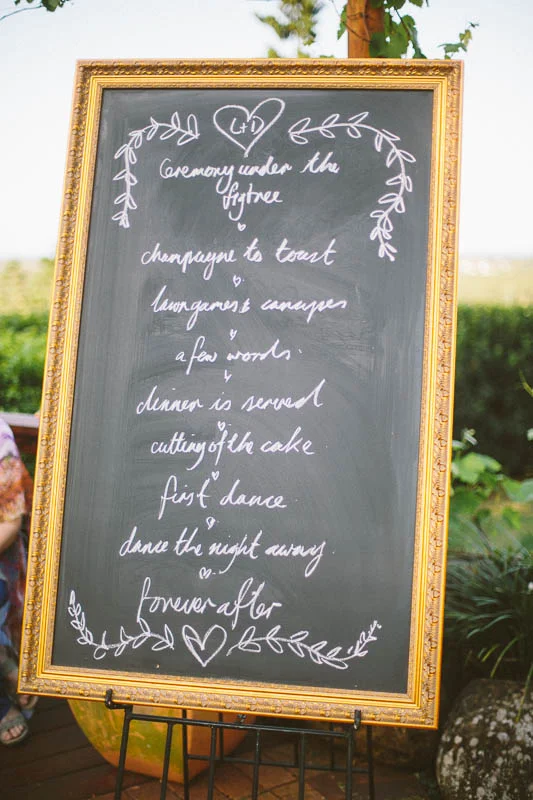 L+D
Ceremony under the
figtree
champagne to toast
lawn games & canapes
a few words
dinner is served
cutting of the cake
first dance
dance the night away
forever after